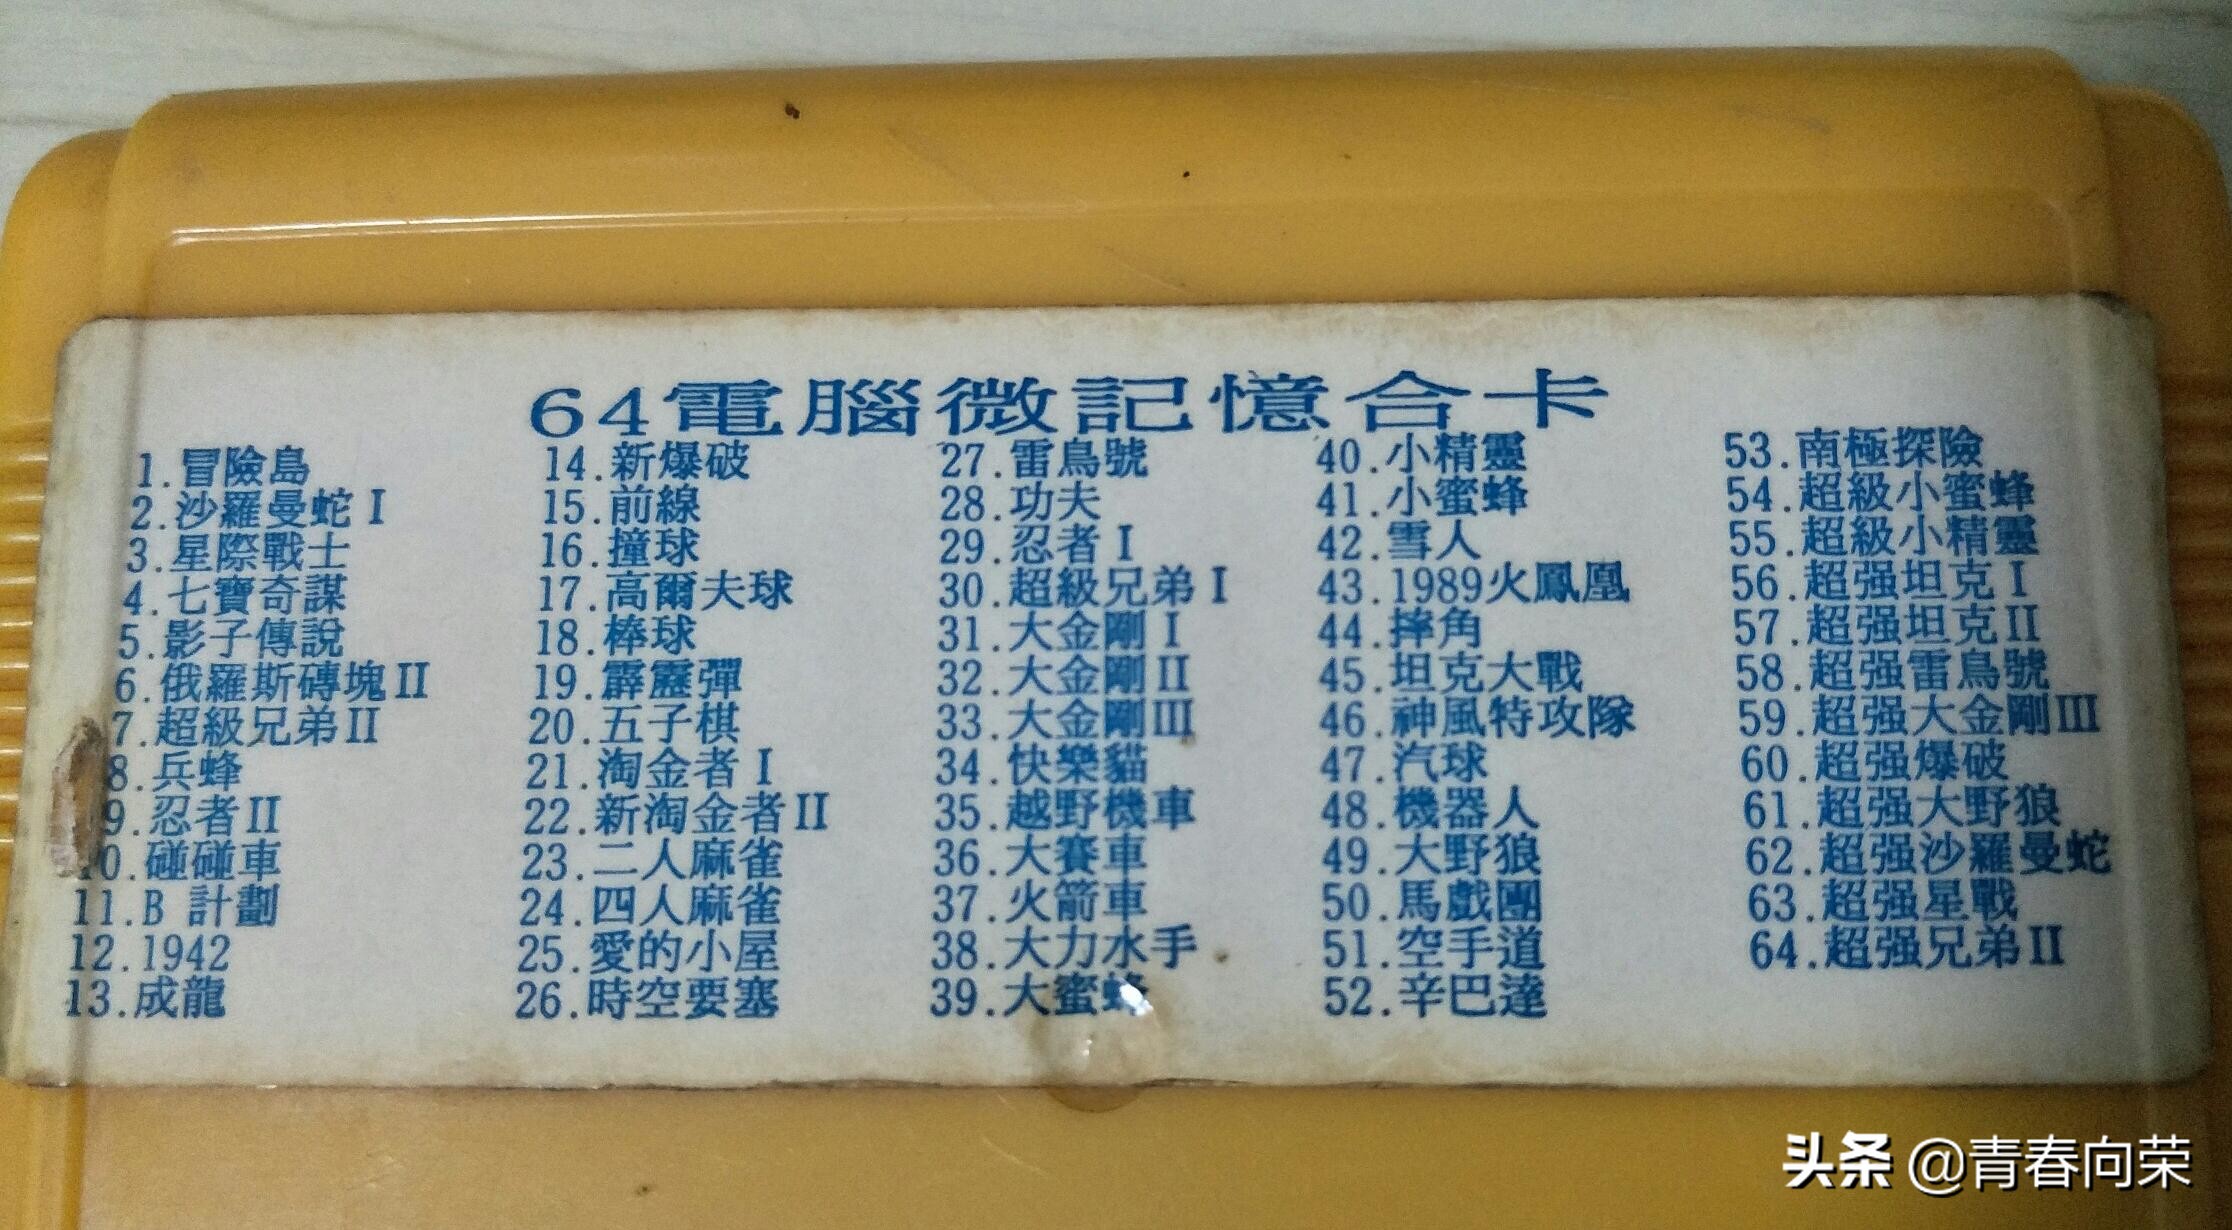 64電腦微記憶合卡
1.冒險島
2.沙羅曼蛇I
3.星際戰士
4.七寶奇謀
5.影子傳說
6.俄羅斯磚塊II
7.超級兄弟II
8.兵蜂
9.忍者II
10.碰碰車
11.B 計劃
12.1942
13.成龍
14.新爆破
15.前線
16.撞球
17.高爾夫球
18.棒球
19.霹靂彈
20.五子棋
21.淘金者I
22.新淘金者II
23.二人麻雀
24.四人麻雀
25.愛的小屋
26.時空要塞
27.雷鳥號
28.功夫
29.忍者I
30.超級兄弟I
31.大金剛I
32.大金剛II
33.大金剛III
34.快樂貓
35.越野機車
36.大賽車
37.火箭車
38.大力水手
39.大蜜蜂
40.小精靈
41.小蜜蜂
42.雪人
43.1989火鳳凰
44.摔角
45.坦克大戰
46.神風特攻隊
47.汽球
48.機器人
49.大野狼
50.馬戲團
51.空手道
52.辛巴達
53.南極探險
54.超級小蜜蜂
55.超級小精靈
56.超强坦克I
57.超强坦克II
58.超强雷鳥號
59.超强大金剛III
60.超强爆破
61.超强大野狼
62.超强沙羅曼蛇
63.超强星戰
64.超强兄弟II
头条 @青春向荣